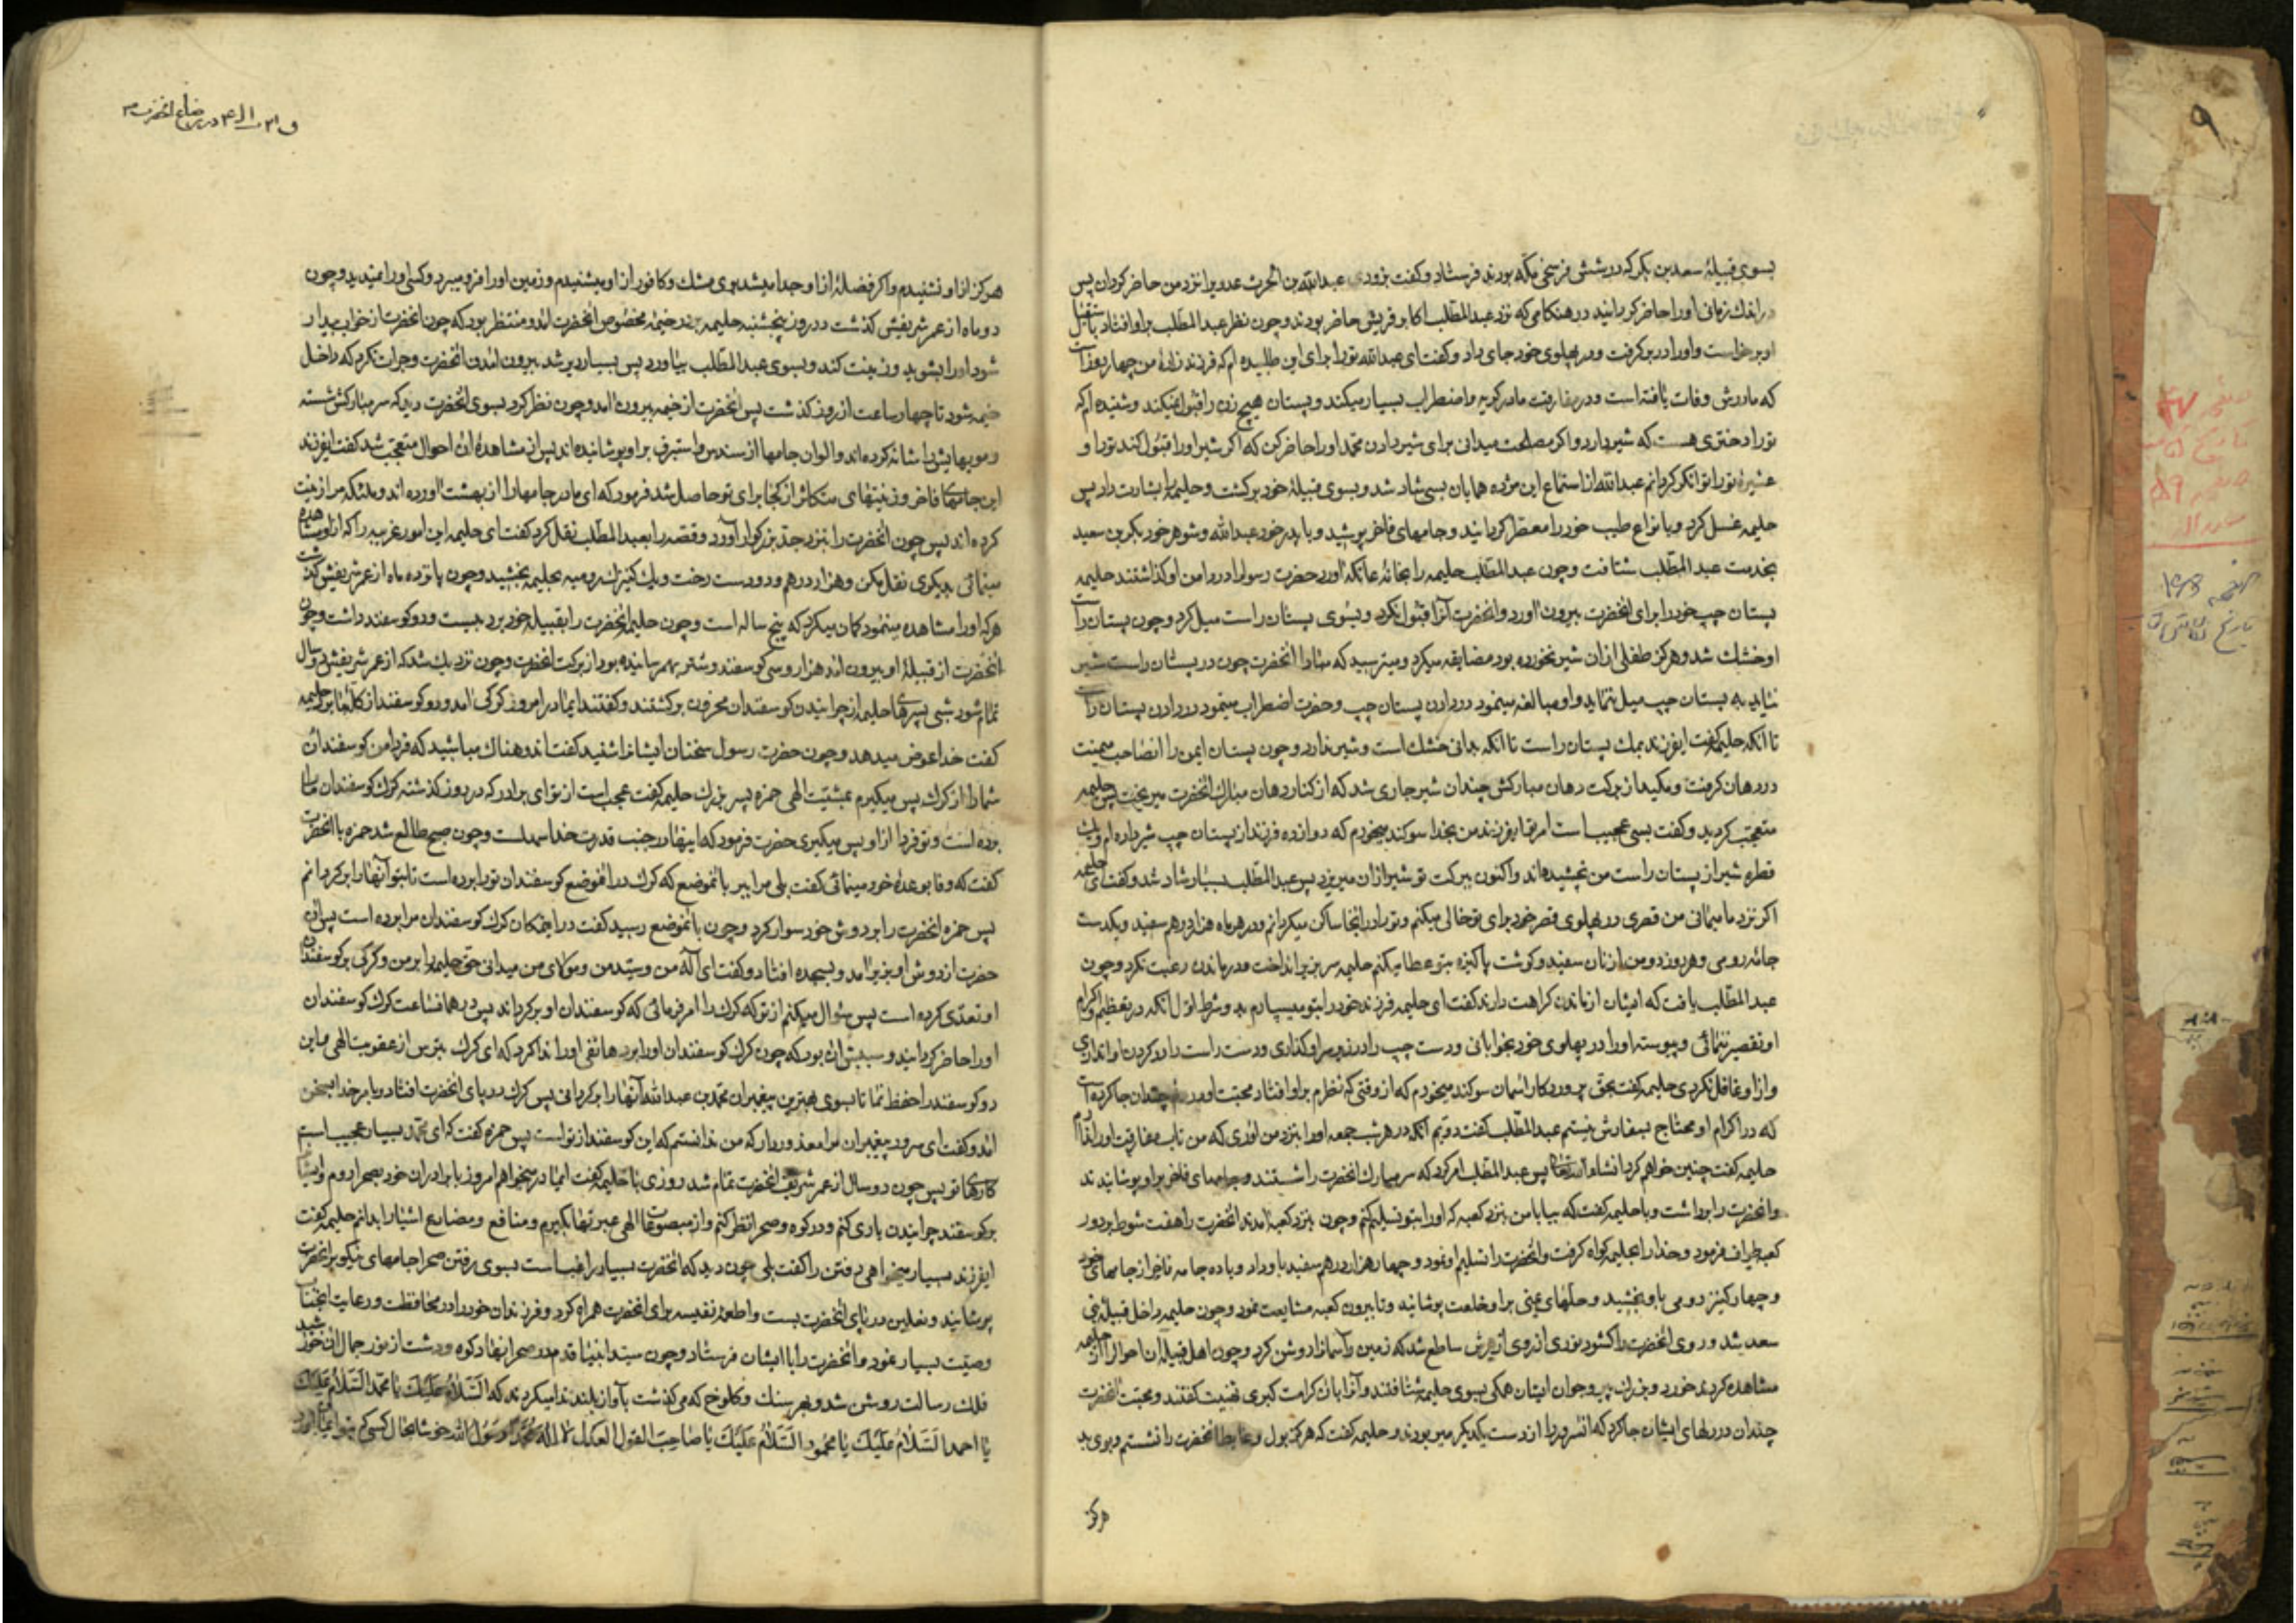 بسوی قبیلهٔ سعد بن بکر که در شش فرسخی مکه بودند فرستاد و گفت بزودی عبدالله بن الحرث عدویرا نزد من حاضر کردان پس
در اندك زمانی اورا حاضر کردانیدند در هنکامی که نزد عبدالمطلب اکابر قریش حاضر بودند و چون نظر عبدالمطلب براو افتاد باستقبال
او برخواست و اورا در بر کرفت و در پهلوی خود جای داد و کفت ای عبدالله تورا برای این طلبیده ام که فرزند زادهٔ من چهار روزه است
که مادرش وفات یافته است و در مفارقت مادر کریه و اضطراب بسیار میکند و پستان هیچ زن را قبول نمیکند و شنیده ام که
تورا دختری هست که شیر دارد و اکر مصلحت میدانی برای شیر دادن محمد اورا حاضر کن که اکر شیر اورا قبول کند تورا و
عشیرهٔ تورا توانکر کردانم عبدالله از استماع این مژده همایان بسی شاد شد و بسوی قبیلهٔ خود برکشت و حلیمه را بشارت داد پس
حلیمه غسل کرد و با نواع طیب خود را معطر کردانید و جامهای فاخر پوشید و با پدر خود عبدالله و شوهر خود بکر بن سعید
بخدمت عبدالمطلب شتافت و چون عبدالمطلب حلیمه را بخانهٔ عاتکه اورد حضرت رسول را در دامن او کذاشتند حلیمه
پستان چپ خود را برای انحضرت بیرون اورد و انحضرت آنرا قبول نکرد و بسوی پستان راست میل کرد و چون پستان راست
او خشك شد و هرکز طفلی از ان شیر نخورده بود مضایقه میکرد و میترسید که مبادا انحضرت چون در پستان راست شیر
نیابد به پستان چپ میل ننماید و او مبالغه مینمود در دادن پستان چپ و حضرت اضطراب مینمود در دادن پستان راست
تا انکه حلیمه کفت ایفرزند بمك پستان راست تا انکه بدانی خشك است و شیر ندارد و چون پستان ایمن را انصاحب میمنت
در دهان کرفت و مکید از برکت دهان مبارکش چندان شیر جاری شد که از کنار دهان مبارك انحضرت میریخت پس حلیمه
متعجب کردید و کفت بسی عجیب است امر تو ایفرزند من بخدا سوکند میخورم که دوازده فرزند از پستان چپ شیر داده ام و یك
قطره شیر از پستان راست من نچشیده اند و اکنون ببرکت تو شیر از ان میریزد پس عبدالمطلب بسیار شاد شد و کفت ای حلیمه
اکر نزد ما میمانی من قصری در پهلوی قصر خود برای تو خالی میکنم و تورا در انجا ساکن میکردانم و در هر ماه هزار درهم سفید و یکدست
جامه رومی و هر روز ده من از نان سفید و کوشت پاکیزه بتو عطا میکنم حلیمه سر بزیر انداخت و در ماندن رغبت نکرد و چون
عبدالمطلب یافت که ایشان از ماندن کراهت دارند کفت ای حلیمه فرزند خود را بتو میسپارم بدو شرط اول انکه در تعظیم و اکرام
او تقصیر ننمائی و پیوسته اورا در پهلوی خود بخوابانی و دست چپ را در زیر سر او کذاری و دست راست را در کردن او اندازی
و از او غافل نکردی حلیمه کفت بحق پروردکار اسمان سوکند میخورم که از وقتی که نظرم براو افتاد محبت او در چندان جا کرده است
که در اکرام او محتاج بسفارش نیستم عبدالمطلب کفت دویم انکه در هر شب جمعه اورا بنزد من اوری که من تاب مفارقت اورا ندارم
حلیمه کفت چنین خواهم کرد انشاءالله تعالی پس عبدالمطلب امر کرد که سر مبارك انحضرت را شستند و جامهای فاخر براو پوشانیدند
و انحضرت را برداشت و با حلیمه کفت که بیا با من بنزد کعبه که اورا بتو تسلیم کنم و چون بنزد کعبه امدند انحضرت را هفت شوط بر دور
کعبه طواف فرمود و خدا را بحلیمه کواه کرفت و انحضرت را تسلیم او نمود و چهار هزار درهم سفید باو داد و با ده جامه فاخر از جامهای خود
و چهار کنیز رومی باو بخشید و حلهای یمنی براو خلعت پوشانید و تا بیرون کعبه مشایعت نمود و چون حلیمه داخل قبیلهٔ بنی
سعد شد و روی انحضرت را کشود نوری از روی ازهرش ساطع شد که زمین و آسمانرا روشن کرد و چون اهل قبیله ان احوال را از حلیمه
مشاهده کردند خورد و بزرك پیر و جوان ایشان همکی بسوی حلیمه شتافتند و آنرا بان کرامت کبری تهنیت کفتند و محبت انحضرت
چندان در دلهای ایشان جا کرد که انسرور را از دست یکدیکر میربودند و حلیمه کفت که هرکز بول و غایط انحضرت را نشستم و بوی بد
هرکز
هرکز از او نشنیدم و اکر فضلهٔ از او جدا میشد بوی مشك و کافور از او میشنیدم و زمین اورا فرو میبرد و کسی اورا نمیدید و چون
دو ماه از عمر شریفش کذشت در روز پنجشنبه حلیمه بدر خیمهٔ مخصوص انحضرت امد و منتظر بود که چون انحضرت از خواب بیدار
شود اورا بشوید و زینت کند و بسوی عبدالمطلب بیاورد پس بسیار دیر شد بیرون امدن انحضرت و جرات نکرد که داخل
خیمه شود تا چهار ساعت از روز کذشت پس انحضرت از خیمه بیرون امد و چون نظر کرد بسوی انحضرت دید که سر مبارکش شسته
و مویهایش را شانه کرده اند و الوان جامها از سندس و استبرق براو پوشانیده اند پس از مشاهدهٔ ان احوال متعجب شد کفت ایفرزند
این جامهای فاخر و زینتهای متکاثر از کجا برای تو حاصل شد فرمود که ای مادر جامها را از بهشت اورده اند و ملئکه مرا زینت
کرده اند پس چون انحضرت را بنزد جد بزرکوار آورد و قصه را بعبدالمطلب نقل کرد کفت ای حلیمه این امور غریبه را که از او مشاهده
مینمائی بدیکری نقل مکن و هزار درهم و ده دست رخت و یك کنیزك رومیه بحلیمه بخشید و چون پانزده ماه از عمر شریفش کذشت
هرکه اورا مشاهده مینمود کمان میکرد که پنج ساله است و چون حلیمه انحضرت را بقبیله خود برد بیست و دو کوسفند داشت و چون
انحضرت از قبیلهٔ او بیرون امد هزار و سی کوسفند و شتر بهم رسانیده بود از برکت انحضرت و چون نزدیك شد که از عمر شریفش دو سال
تمام شود شبی پسرهای حلیمه از چرانیدن کوسفندان محزون برکشتند و کفتند ایمادر امروز کرکی امد و دو کوسفند از کلهٔ ما برد حلیمه
کفت خدا عوض میدهد و چون حضرت رسول سخنان ایشانرا شنید کفت اندوهناك مباشید که فردا من کوسفندان
شما را از کرك پس میکیرم بمشیت الهی حمزه پسر بزرك حلیمه کفت عجب است از تو ای برادر که در روز کذشته کرك کوسفندان ما را
برده است و تو فردا از او پس میکیری حضرت فرمود که اینها در جنب قدرت خدا سهلست و چون صبح طالع شد حمزه با انحضرت
کفت که وفا بوعدهٔ خود مینمائی کفت بلی مرا ببر بانموضع که کرك در انموضع کوسفندان تورا برده است تا بتو آنها را برکردانم
پس حمزه انحضرت را بر دوش خود سوار کرد و چون بانموضع رسید کفت در اینمکان کرك کوسفندان مرا برده است پس ان
حضرت از دوش او بزیر امد و بسجده افتاد و کفت ای اله من و سید من و مولای من میدانی حق حلیمه را بر من و کرکی بر کوسفندان
او تعدی کرده است پس سؤال میکنم از تو که کرك را امر فرمائی که کوسفندان او برکرداند پس در همانساعت کرك کوسفندان
اورا حاضر کردانید و سببش ان بود که چون کرك کوسفندان اورا برد هاتفی اورا ندا کرد که ای کرك بترس از عقوبت الهی و این
دو کوسفند را حفظ نما تا بسوی بهترین پیغمبران محمد بن عبدالله آنها را برکردانی پس کرك در پای انحضرت افتاد و بامر خدا بسخن
امد و کفت ای سرور پیغمبران مرا معذور دار که من ندانستم که این کوسفند از تو است پس حمزه کفت که ای محمد بسیار عجیب است
کارهای تو پس چون دو سال از عمر شریف انحضرت تمام شد روزی با حلیمه کفت ایمادر میخواهم امروز با برادران خود بصحرا روم و ایشانرا
بر کوسفند چرانیدن یاری کنم و در کوه و صحرا نظر کنم و از مصنوعات الهی عبرتها بکیرم و منافع و مضار اشیا را بدانم حلیمه کفت
ایفرزند بسیار میخواهی رفتن را کفت بلی چون دید که انحضرت بسیار راغب است بسوی رفتن صحرا جامهای نیکو بر انحضرت
پوشانید و نعلین در پای انحضرت بست و اطعمهٔ نفیسه برای انحضرت همراه کرد و فرزندان خود را در محافظت و رعایت انجناب
وصیت بسیار نمود و انحضرت را با ایشان فرستاد و چون سید انبیا قدم در صحرا نهاد کوه و دشت از نور جمال ان خورشید
فلك رسالت روشن شد و بهر سنك و کلوخ که می کذشت بآواز بلند ندا میکردند که السَّلامُ عَلَیْكَ یا محمد السَّلامُ عَلَیْكَ
یا احمد السَّلامُ عَلَیْكَ یا محمود السَّلامُ عَلَیْكَ یا صاحِبَ القول العدل لا اله الا الله محمد رسول الله خوشا بحال کسی که بتو ایمان اورد